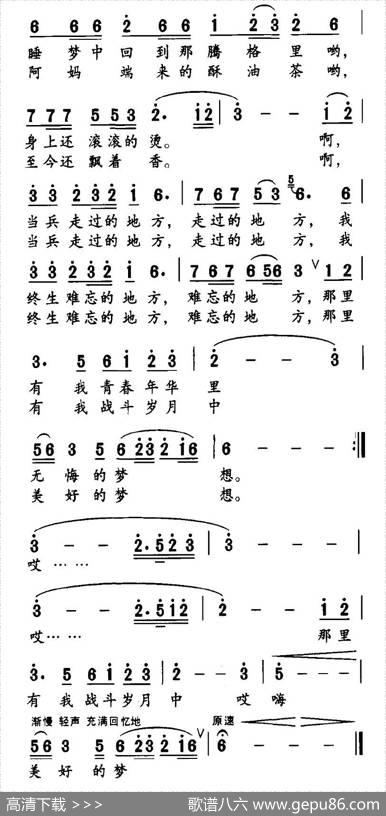 6 6 6 6 2 6 6 1 2 2 6
睡梦中回到那腾格里哟，
阿妈端来的酥油茶哟，
7 7 7 5 5 3 2· 1 2 | 3 - - 1 2 |
身上还滚滚的烫。 啊，
至今还飘着香。 啊，
3 3 2 3 2 1 6· | 7 6 7 5 3 5 6· 6 |
当兵走过的地方，走过的地方，我
当兵走过的地方，走过的地方，我
3 3 2 3 2 1 6· | 7 6 7 6 5 6 3 ∨ 1 2 |
终生难忘的地方，难忘的地方，那里
终生难忘的地方，难忘的地方，那里
3· 5 6 1 2 3 | 2 - - 3 |
有我青春年华里
有我战斗岁月中
5 6 3 5 6 2 3 2 1 6 | 6 - - - :‖
无悔的梦想。
美好的梦想。
3 - - 2·5 2 3 | 3 - - - |
哎……
3 - - 2·5 1 2 | 2 - - 1 2 |
哎…… 那里
3· 5 6 1 2 3 | 2 - - 3 | 5 - - - |
有我战斗岁月中 哎嗨
渐慢 轻声 充满回忆地 原速
5 6 3 5 6 2 3 2 1 6 ∨ | 6 - - - ‖
美好的梦
高清下载 >>> 歌谱八六 www.gepu86.com